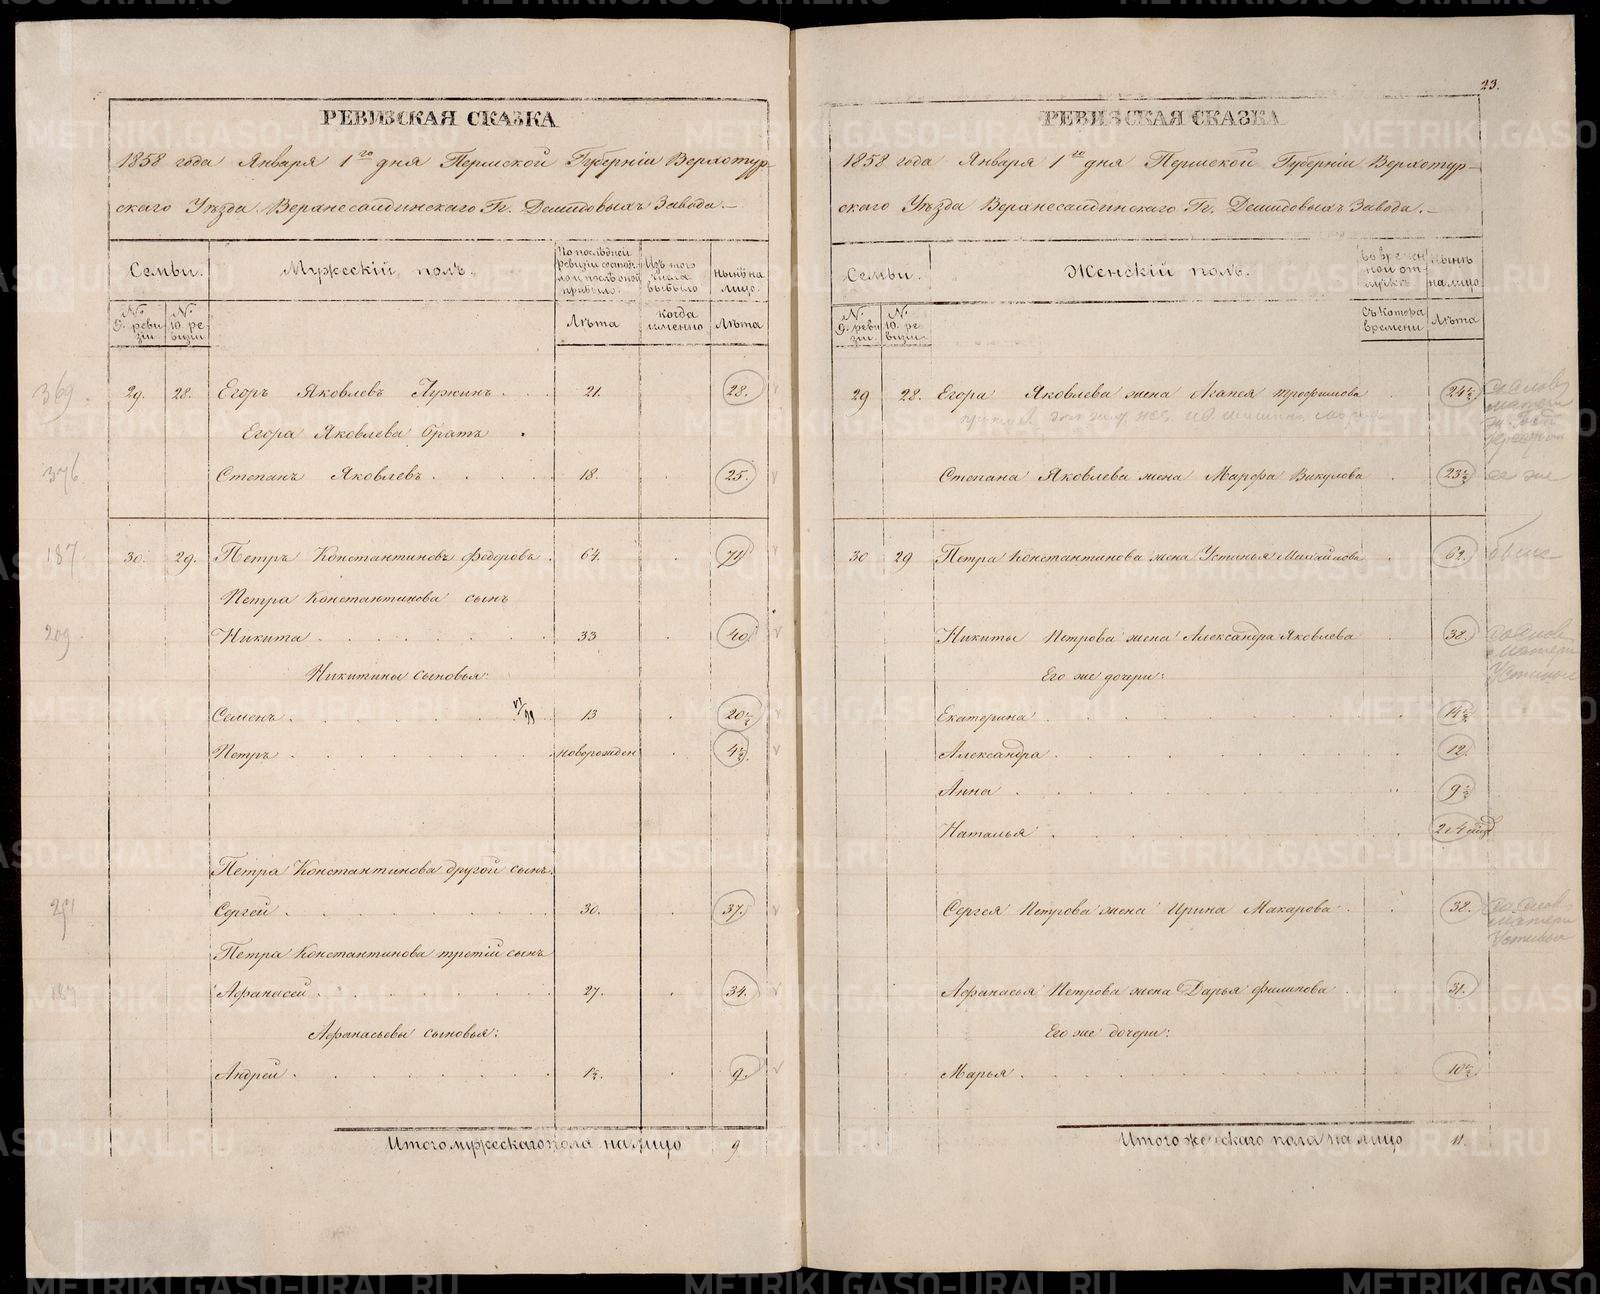 23.
РЕВИЗСКАЯ СКАЗКА
1858 года Января 1го дня Пермской Губерніи Верхотур-
скаго Уѣзда Верхнесалдинскаго Гг. Демидовыхъ Завода.
Семьи. Мужескій полъ. По послѣдней ревизіи состояло и послѣ оной прибыло. Изъ того числа выбыло Нынѣ на лицо.
№ 9. ревизіи. № 10. ревизіи. Лѣта Когда именно Лѣта
369. 29. 28. Егоръ Яковлевъ Лужинъ 21. 28.
Егора Яковлева братъ
376 Степанъ Яковлевъ 18. 25.
187. 30. 29. Петръ Константиновъ Федоровъ 64. 71
Петра Константинова сынъ
209. Никита 33 40
Никитины сыновья:
Семенъ 13 20½
Петръ новорожден 4½
Петра Константинова другой сынъ
Сергей 30. 37.
Петра Константинова третій сынъ
187 Афанасей 27. 34.
Афанасьевы сыновья:
Андрей 1½. 9.
Итого мужескаго пола на лицо 9
РЕВИЗСКАЯ СКАЗКА
1858 года Января 1го дня Пермской Губерніи Верхотур-
скаго Уѣзда Верхнесалдинскаго Гг. Демидовыхъ Завода.
Семьи. Женскій полъ. Во временной отлучкѣ Нынѣ на лицо
№ 9. ревизіи. № 10. ревизіи. Съ котора времени Лѣта
29 28. Егора Яковлева жена Агапея Трофимова 24½
Степана Яковлева жена Марфа Викулова 23½ ее же
30 29 Петра Константинова жена Устинья Михайлова 62.
Никиты Петрова жена Александра Яковлева 38. матери Устиньи
Его же дочери:
Екатерина 14½
Александра 12.
Анна 9½
Наталья
Сергея Петрова жена Ирина Макарова 38. матери Устиньи
Афанасья Петрова жена Дарья Филипова 31.
Его же дочери:
Марья 10½
Итого женскаго пола на лицо 11.
METRIKI.GASO-URAL.RU